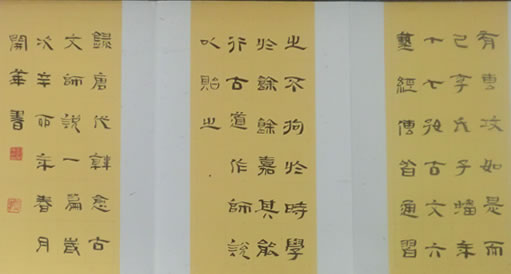 有專攻如是而
已李氏子蟠年
十七好古文六
藝經傳皆通習
之不拘於時學
於餘餘嘉其能
行古道作師說
以貽之
錄唐代韓愈古
文師說一篇歲
次辛卯年春月
開華書